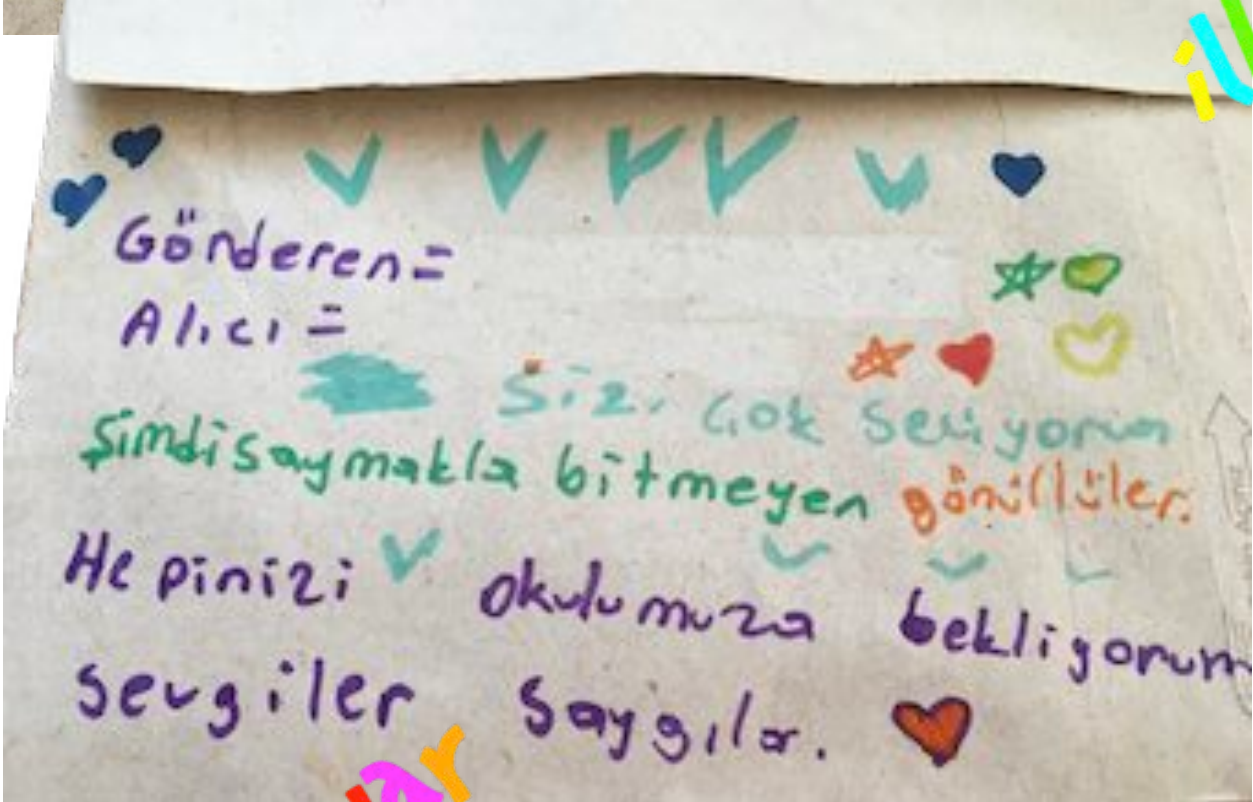 Gönderen=
Alıcı=
Sizi çok seviyorum
Şimdi saymakla bitmeyen gönüllüler.
Hepinizi okulumuza bekliyorum
sevgiler saygılar.